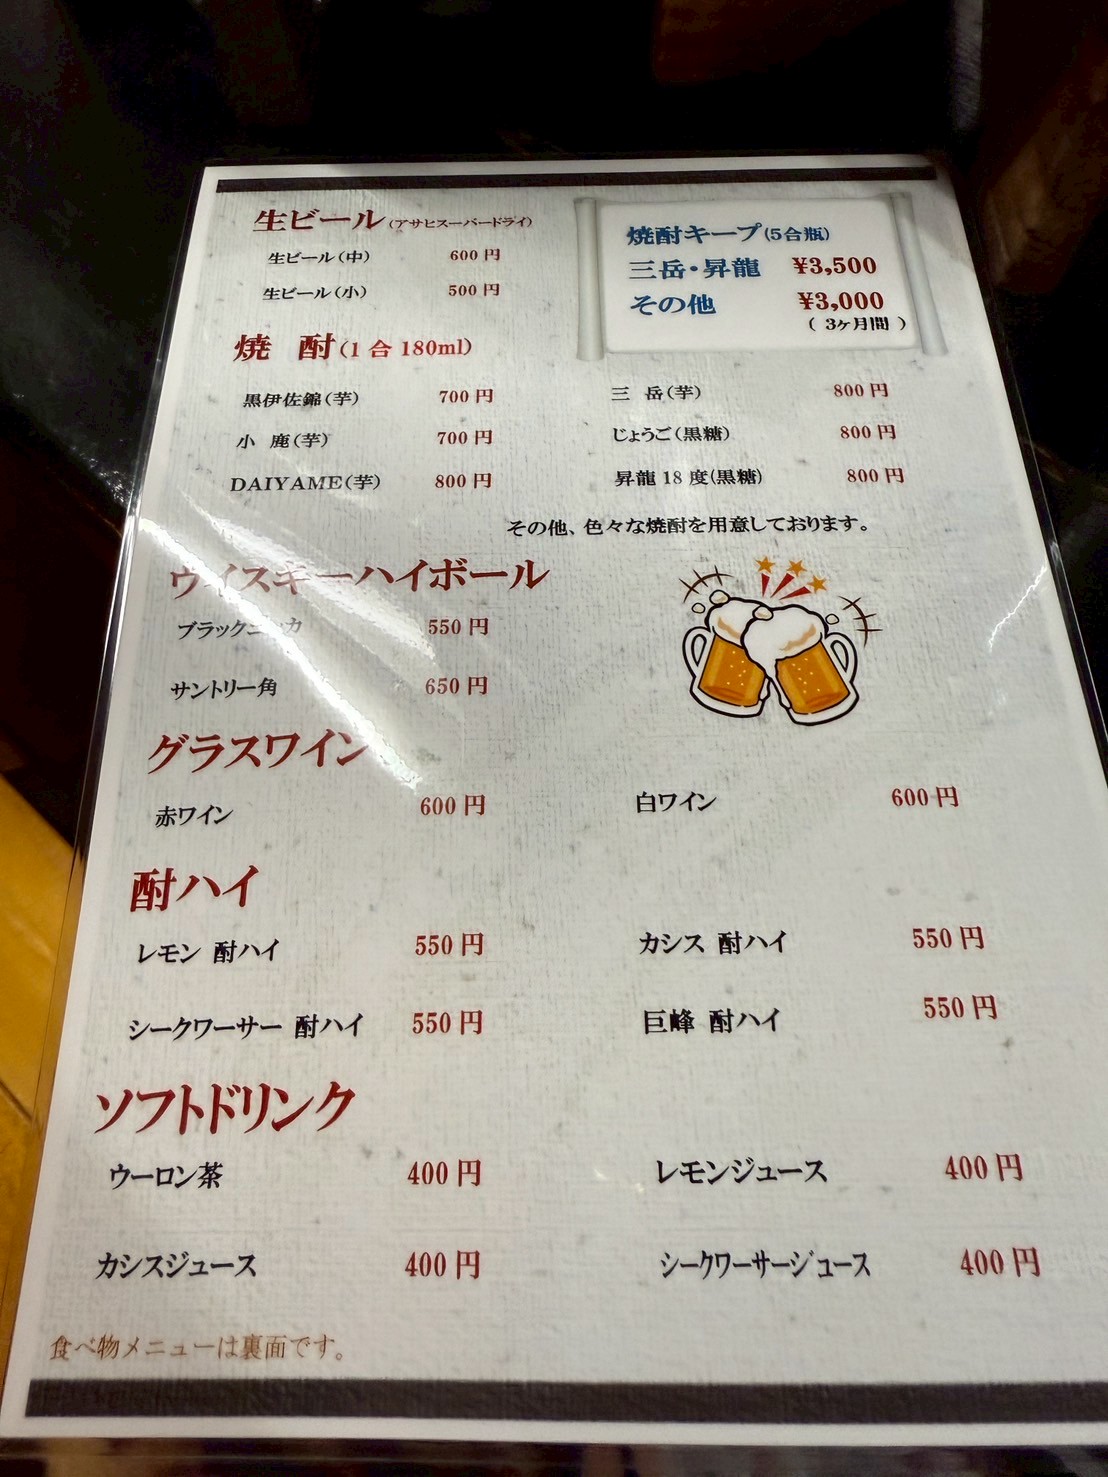 生ビール(アサヒスーパードライ)
生ビール(中) 600円
生ビール(小) 500円
焼酎キープ(5合瓶)
三岳・昇龍 ¥3,500
その他 ¥3,000
(3ヶ月間)
焼 酎(1合180ml)
黒伊佐錦(芋) 700円 三 岳(芋) 800円
小 鹿(芋) 700円 じょうご(黒糖) 800円
DAIYAME(芋) 800円 昇龍18度(黒糖) 800円
その他、色々な焼酎を用意しております。
ウイスキーハイボール
ブラックニッカ 550円
サントリー角 650円
グラスワイン
赤ワイン 600円 白ワイン 600円
酎ハイ
レモン 酎ハイ 550円 カシス 酎ハイ 550円
シークワーサー 酎ハイ 550円 巨峰 酎ハイ 550円
ソフトドリンク
ウーロン茶 400円 レモンジュース 400円
カシスジュース 400円 シークワーサージュース 400円
食べ物メニューは裏面です。